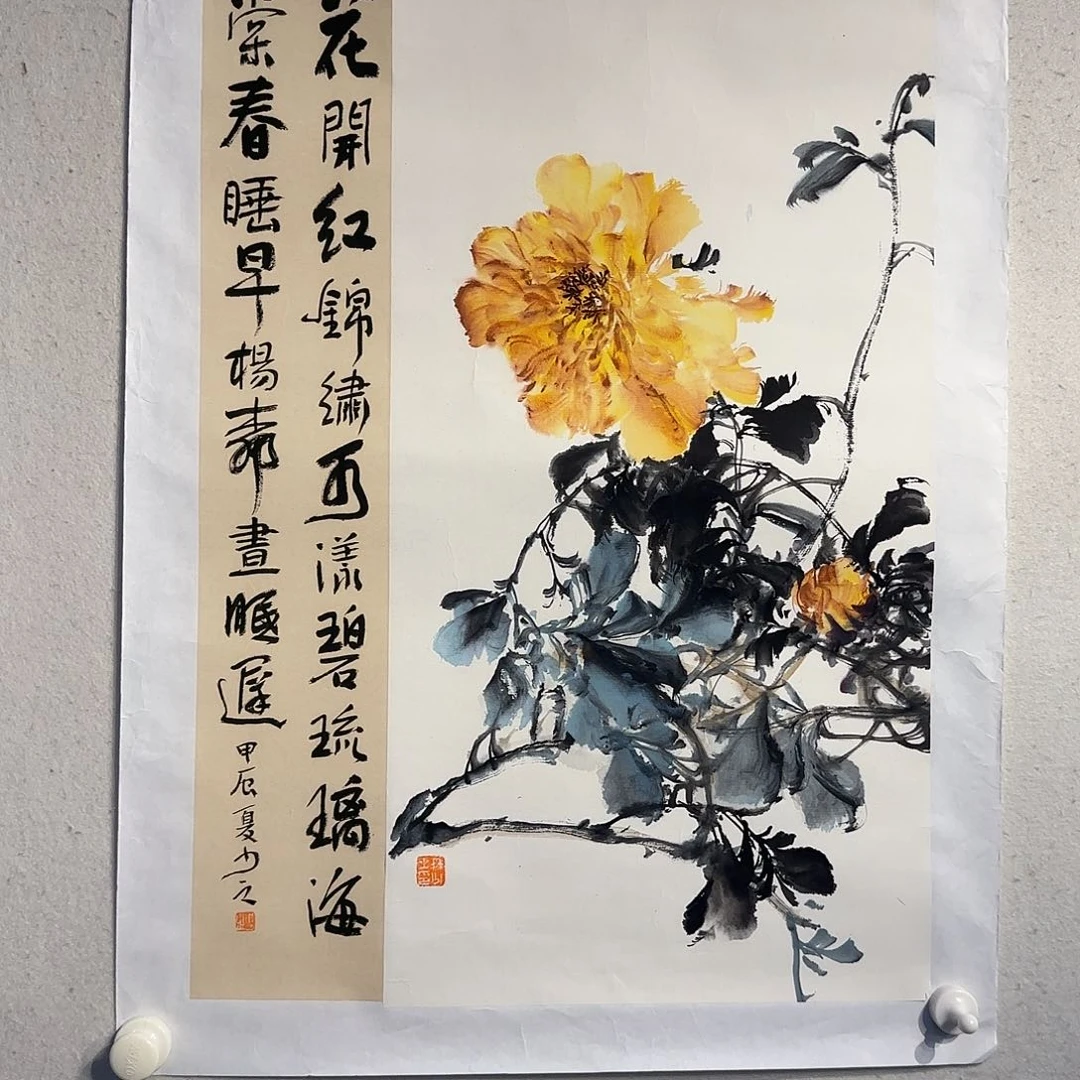 花開红錦繡水漾碧琉璃海
棠春睡早楊柳晝眠遲
甲辰夏